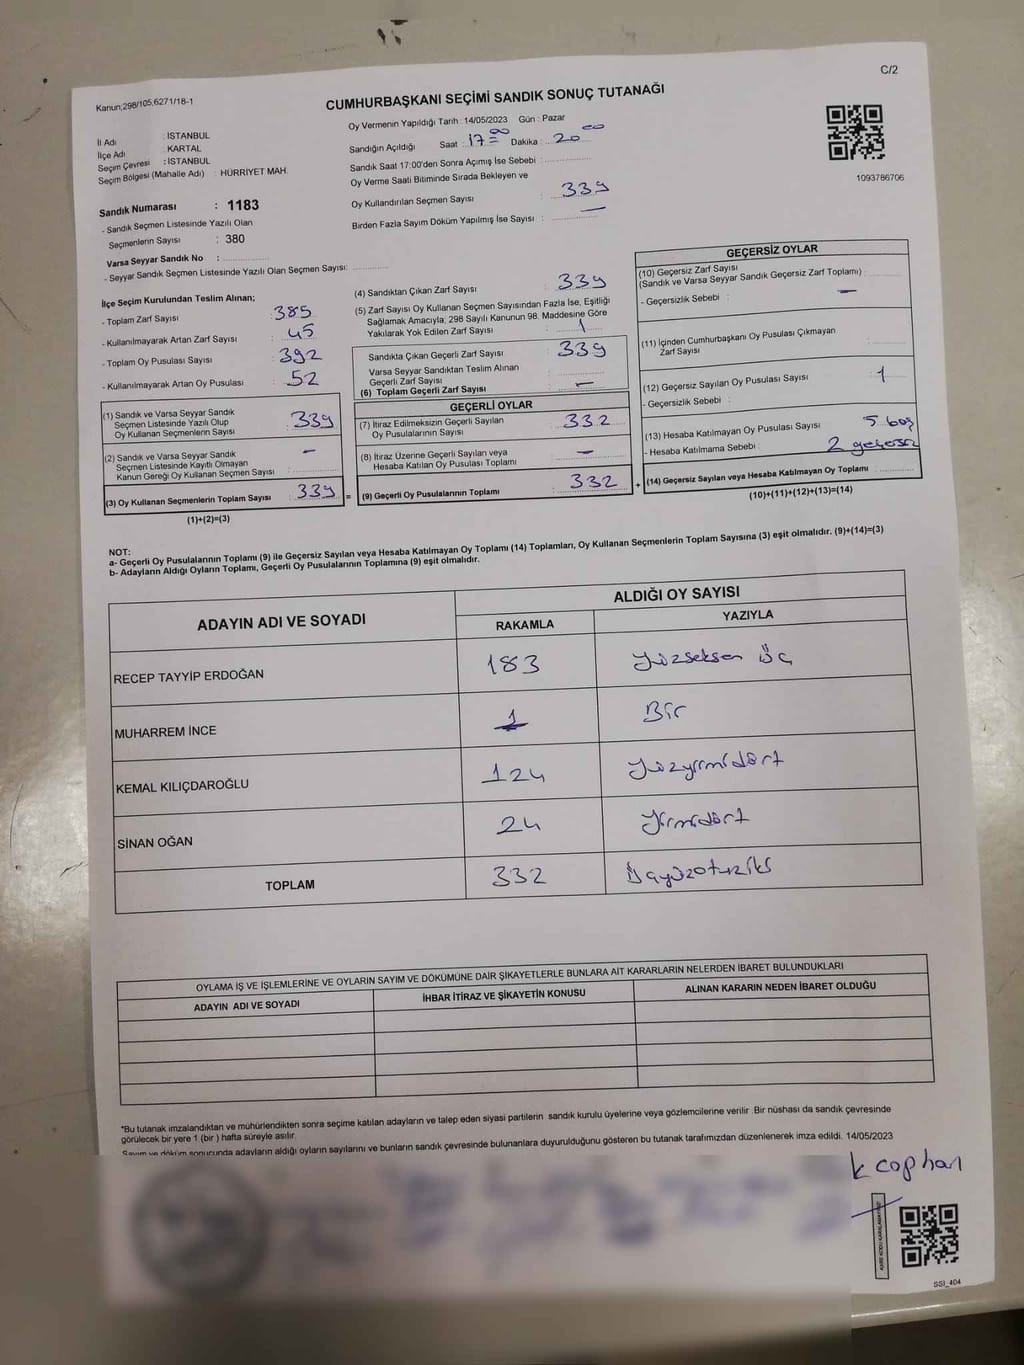 C/2
Kanun;298/105;6271/18-1
CUMHURBAŞKANI SEÇİMİ SANDIK SONUÇ TUTANAĞI
İl Adı : İSTANBUL
İlçe Adı : KARTAL
Seçim Çevresi : İSTANBUL
Seçim Bölgesi (Mahalle Adı) : HÜRRİYET MAH.
Oy Vermenin Yapıldığı Tarih : 14/05/2023 Gün : Pazar
Sandığın Açıldığı Saat : 17 00 Dakika : 20 00
Sandık Saat 17:00'den Sonra Açımış İse Sebebi :
Oy Verme Saati Bitiminde Sırada Bekleyen ve
Oy Kullandırılan Seçmen Sayısı : 339
Birden Fazla Sayım Döküm Yapılmış İse Sayısı : —
1093786706
Sandık Numarası : 1183
- Sandık Seçmen Listesinde Yazılı Olan
Seçmenlerin Sayısı : 380
Varsa Seyyar Sandık No :
- Seyyar Sandık Seçmen Listesinde Yazılı Olan Seçmen Sayısı:
İlçe Seçim Kurulundan Teslim Alınan;
- Toplam Zarf Sayısı : 385
- Kullanılmayarak Artan Zarf Sayısı : 45
- Toplam Oy Pusulası Sayısı : 392
- Kullanılmayarak Artan Oy Pusulası : 52
(1) Sandık ve Varsa Seyyar Sandık
Seçmen Listesinde Yazılı Olup
Oy Kullanan Seçmenlerin Sayısı : 339
(2) Sandık ve Varsa Seyyar Sandık
Seçmen Listesinde Kayıtlı Olmayan
Kanun Gereği Oy Kullanan Seçmen Sayısı : -
(3) Oy Kullanan Seçmenlerin Toplam Sayısı : 339 =
(1)+(2)=(3)
(4) Sandıktan Çıkan Zarf Sayısı : 339
(5) Zarf Sayısı Oy Kullanan Seçmen Sayısından Fazla İse, Eşitliği
Sağlamak Amacıyla; 298 Sayılı Kanunun 98. Maddesine Göre
Yakılarak Yok Edilen Zarf Sayısı : 1
Sandıkta Çıkan Geçerli Zarf Sayısı : 339
Varsa Seyyar Sandıktan Teslim Alınan
Geçerli Zarf Sayısı :
(6) Toplam Geçerli Zarf Sayısı : —
GEÇERLİ OYLAR
(7) İtiraz Edilmeksizin Geçerli Sayılan
Oy Pusulalarının Sayısı : 332
(8) İtiraz Üzerine Geçerli Sayılan veya
Hesaba Katılan Oy Pusulası Toplamı : —
(9) Geçerli Oy Pusulalarının Toplamı : 332 +
GEÇERSİZ OYLAR
(10) Geçersiz Zarf Sayısı
(Sandık ve Varsa Seyyar Sandık Geçersiz Zarf Toplamı) :
- Geçersizlik Sebebi : —
(11) İçinden Cumhurbaşkanı Oy Pusulası Çıkmayan
Zarf Sayısı :
(12) Geçersiz Sayılan Oy Pusulası Sayısı : 1
- Geçersizlik Sebebi :
(13) Hesaba Katılmayan Oy Pusulası Sayısı : 5 boş
- Hesaba Katılmama Sebebi : 2 geçersiz
(14) Geçersiz Sayılan veya Hesaba Katılmayan Oy Toplamı :
(10)+(11)+(12)+(13)=(14)
NOT:
a- Geçerli Oy Pusulalarının Toplamı (9) ile Geçersiz Sayılan veya Hesaba Katılmayan Oy Toplamı (14) Toplamları, Oy Kullanan Seçmenlerin Toplam Sayısına (3) eşit olmalıdır. (9)+(14)=(3)
b- Adayların Aldığı Oyların Toplamı, Geçerli Oy Pusulalarının Toplamına (9) eşit olmalıdır.
ADAYIN ADI VE SOYADI
ALDIĞI OY SAYISI
RAKAMLA YAZIYLA
RECEP TAYYİP ERDOĞAN 183 Yüzseksen üç
MUHARREM İNCE 1 Bir
KEMAL KILIÇDAROĞLU 124 Yüzyirmidört
SİNAN OĞAN 24 Yirmidört
TOPLAM 332 Üçyüzotuziki
OYLAMA İŞ VE İŞLEMLERİNE VE OYLARIN SAYIM VE DÖKÜMÜNE DAİR ŞİKAYETLERLE BUNLARA AİT KARARLARIN NELERDEN İBARET BULUNDUKLARI
ADAYIN ADI VE SOYADI İHBAR İTİRAZ VE ŞİKAYETİN KONUSU ALINAN KARARIN NEDEN İBARET OLDUĞU
*Bu tutanak imzalandıktan ve mühürlendikten sonra seçime katılan adayların ve talep eden siyasi partilerin sandık kurulu üyelerine veya gözlemcilerine verilir. Bir nüshası da sandık çevresinde
görülecek bir yere 1 (bir ) hafta süreyle asılır.
Sayım ve döküm sonucunda adayların aldığı oyların sayılarını ve bunların sandık çevresinde bulunanlara duyurulduğunu gösteren bu tutanak tarafımızdan düzenlenerek imza edildi. 14/05/2023
SSİ_404